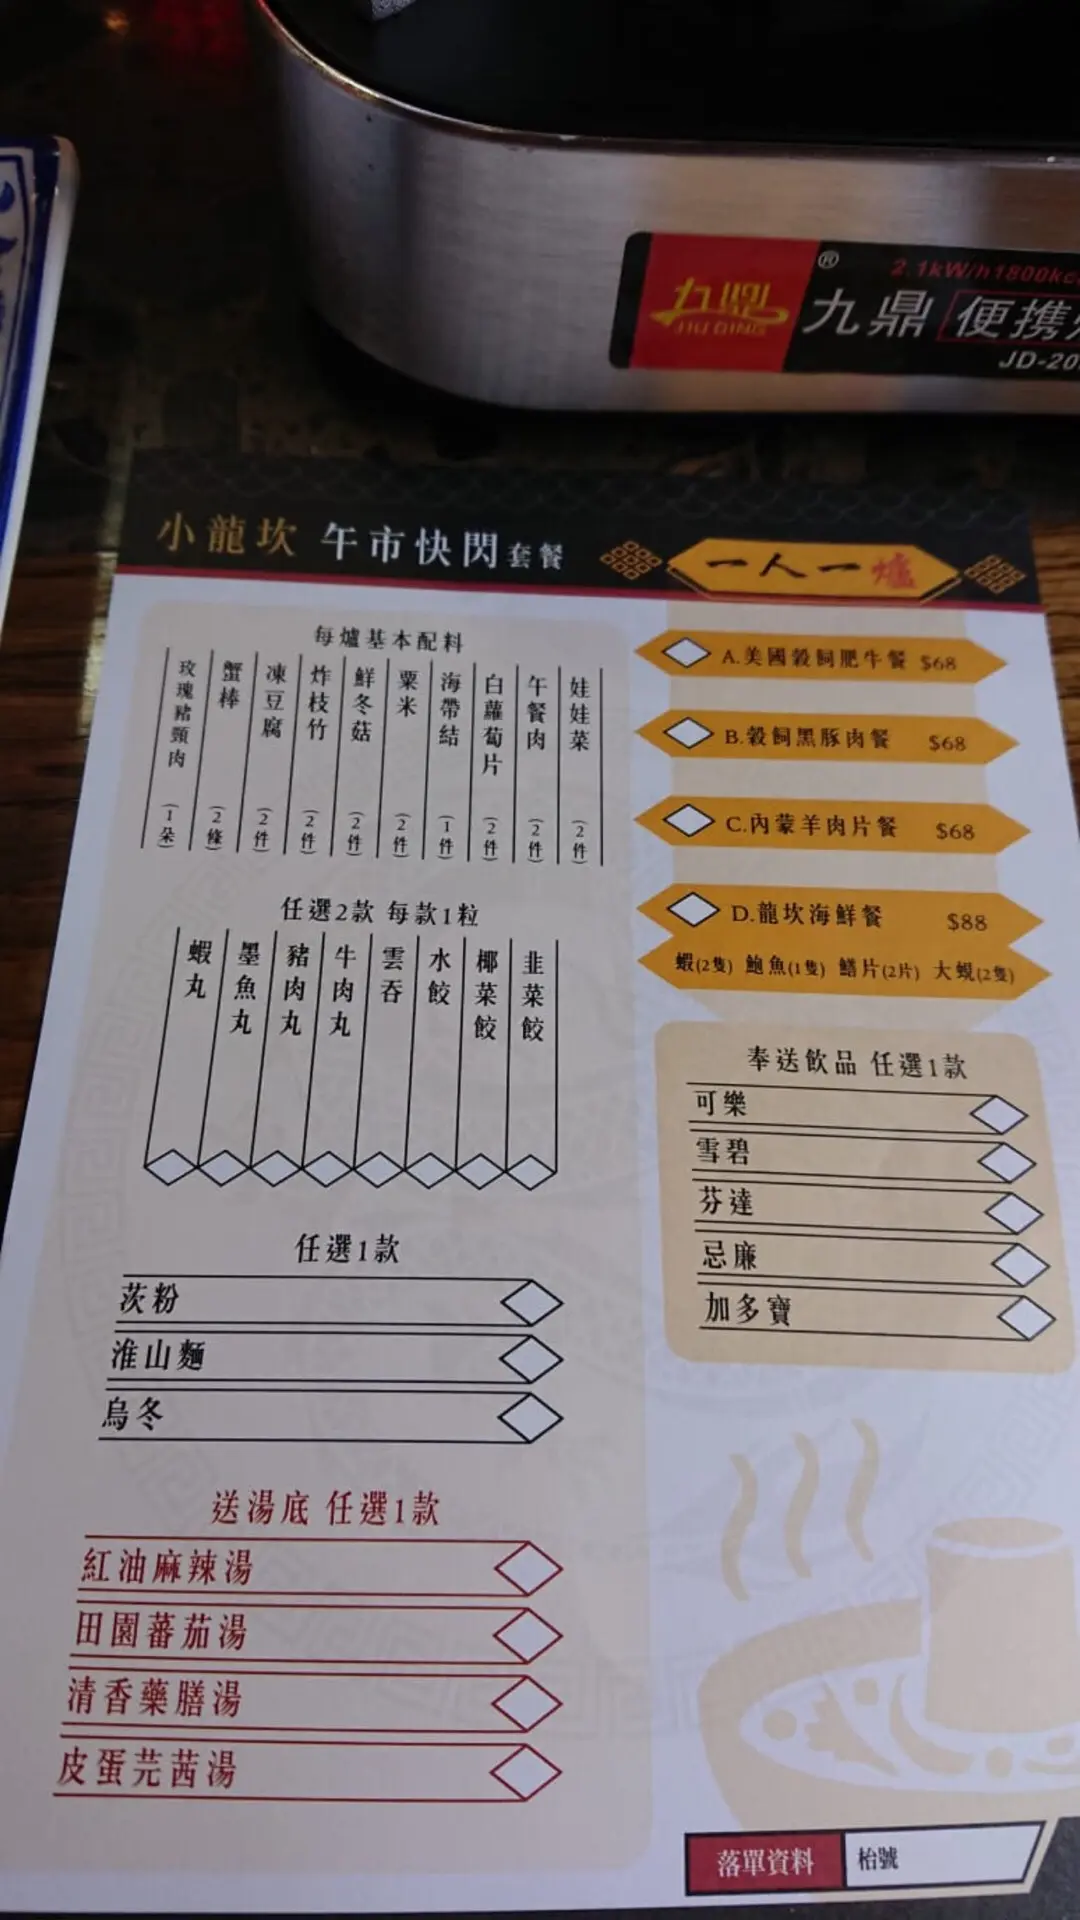 2.1kW/h1800kc
九鼎
JIU DING
®
九鼎 便携
JD-20
小龍坎 午市快閃套餐
一人一爐
每爐基本配料
玫瑰豬頸肉(1朵)
蟹棒(2條)
凍豆腐(2件)
炸枝竹(2件)
鮮冬菇(2件)
粟米(2件)
海帶結(1件)
白蘿蔔片(2件)
午餐肉(2件)
娃娃菜(2件)
任選2款 每款1粒
蝦丸
墨魚丸
豬肉丸
牛肉丸
雲吞
水餃
椰菜餃
韭菜餃
任選1款
茨粉
淮山麵
烏冬
送湯底 任選1款
紅油麻辣湯
田園蕃茄湯
清香藥膳湯
皮蛋芫茜湯
A.美國穀飼肥牛餐 $68
B.穀飼黑豚肉餐 $68
C.內蒙羊肉片餐 $68
D.龍坎海鮮餐 $88
蝦(2隻) 鮑魚(1隻) 鱔片(2片) 大蜆(2隻)
奉送飲品 任選1款
可樂
雪碧
芬達
忌廉
加多寶
落單資料 枱號